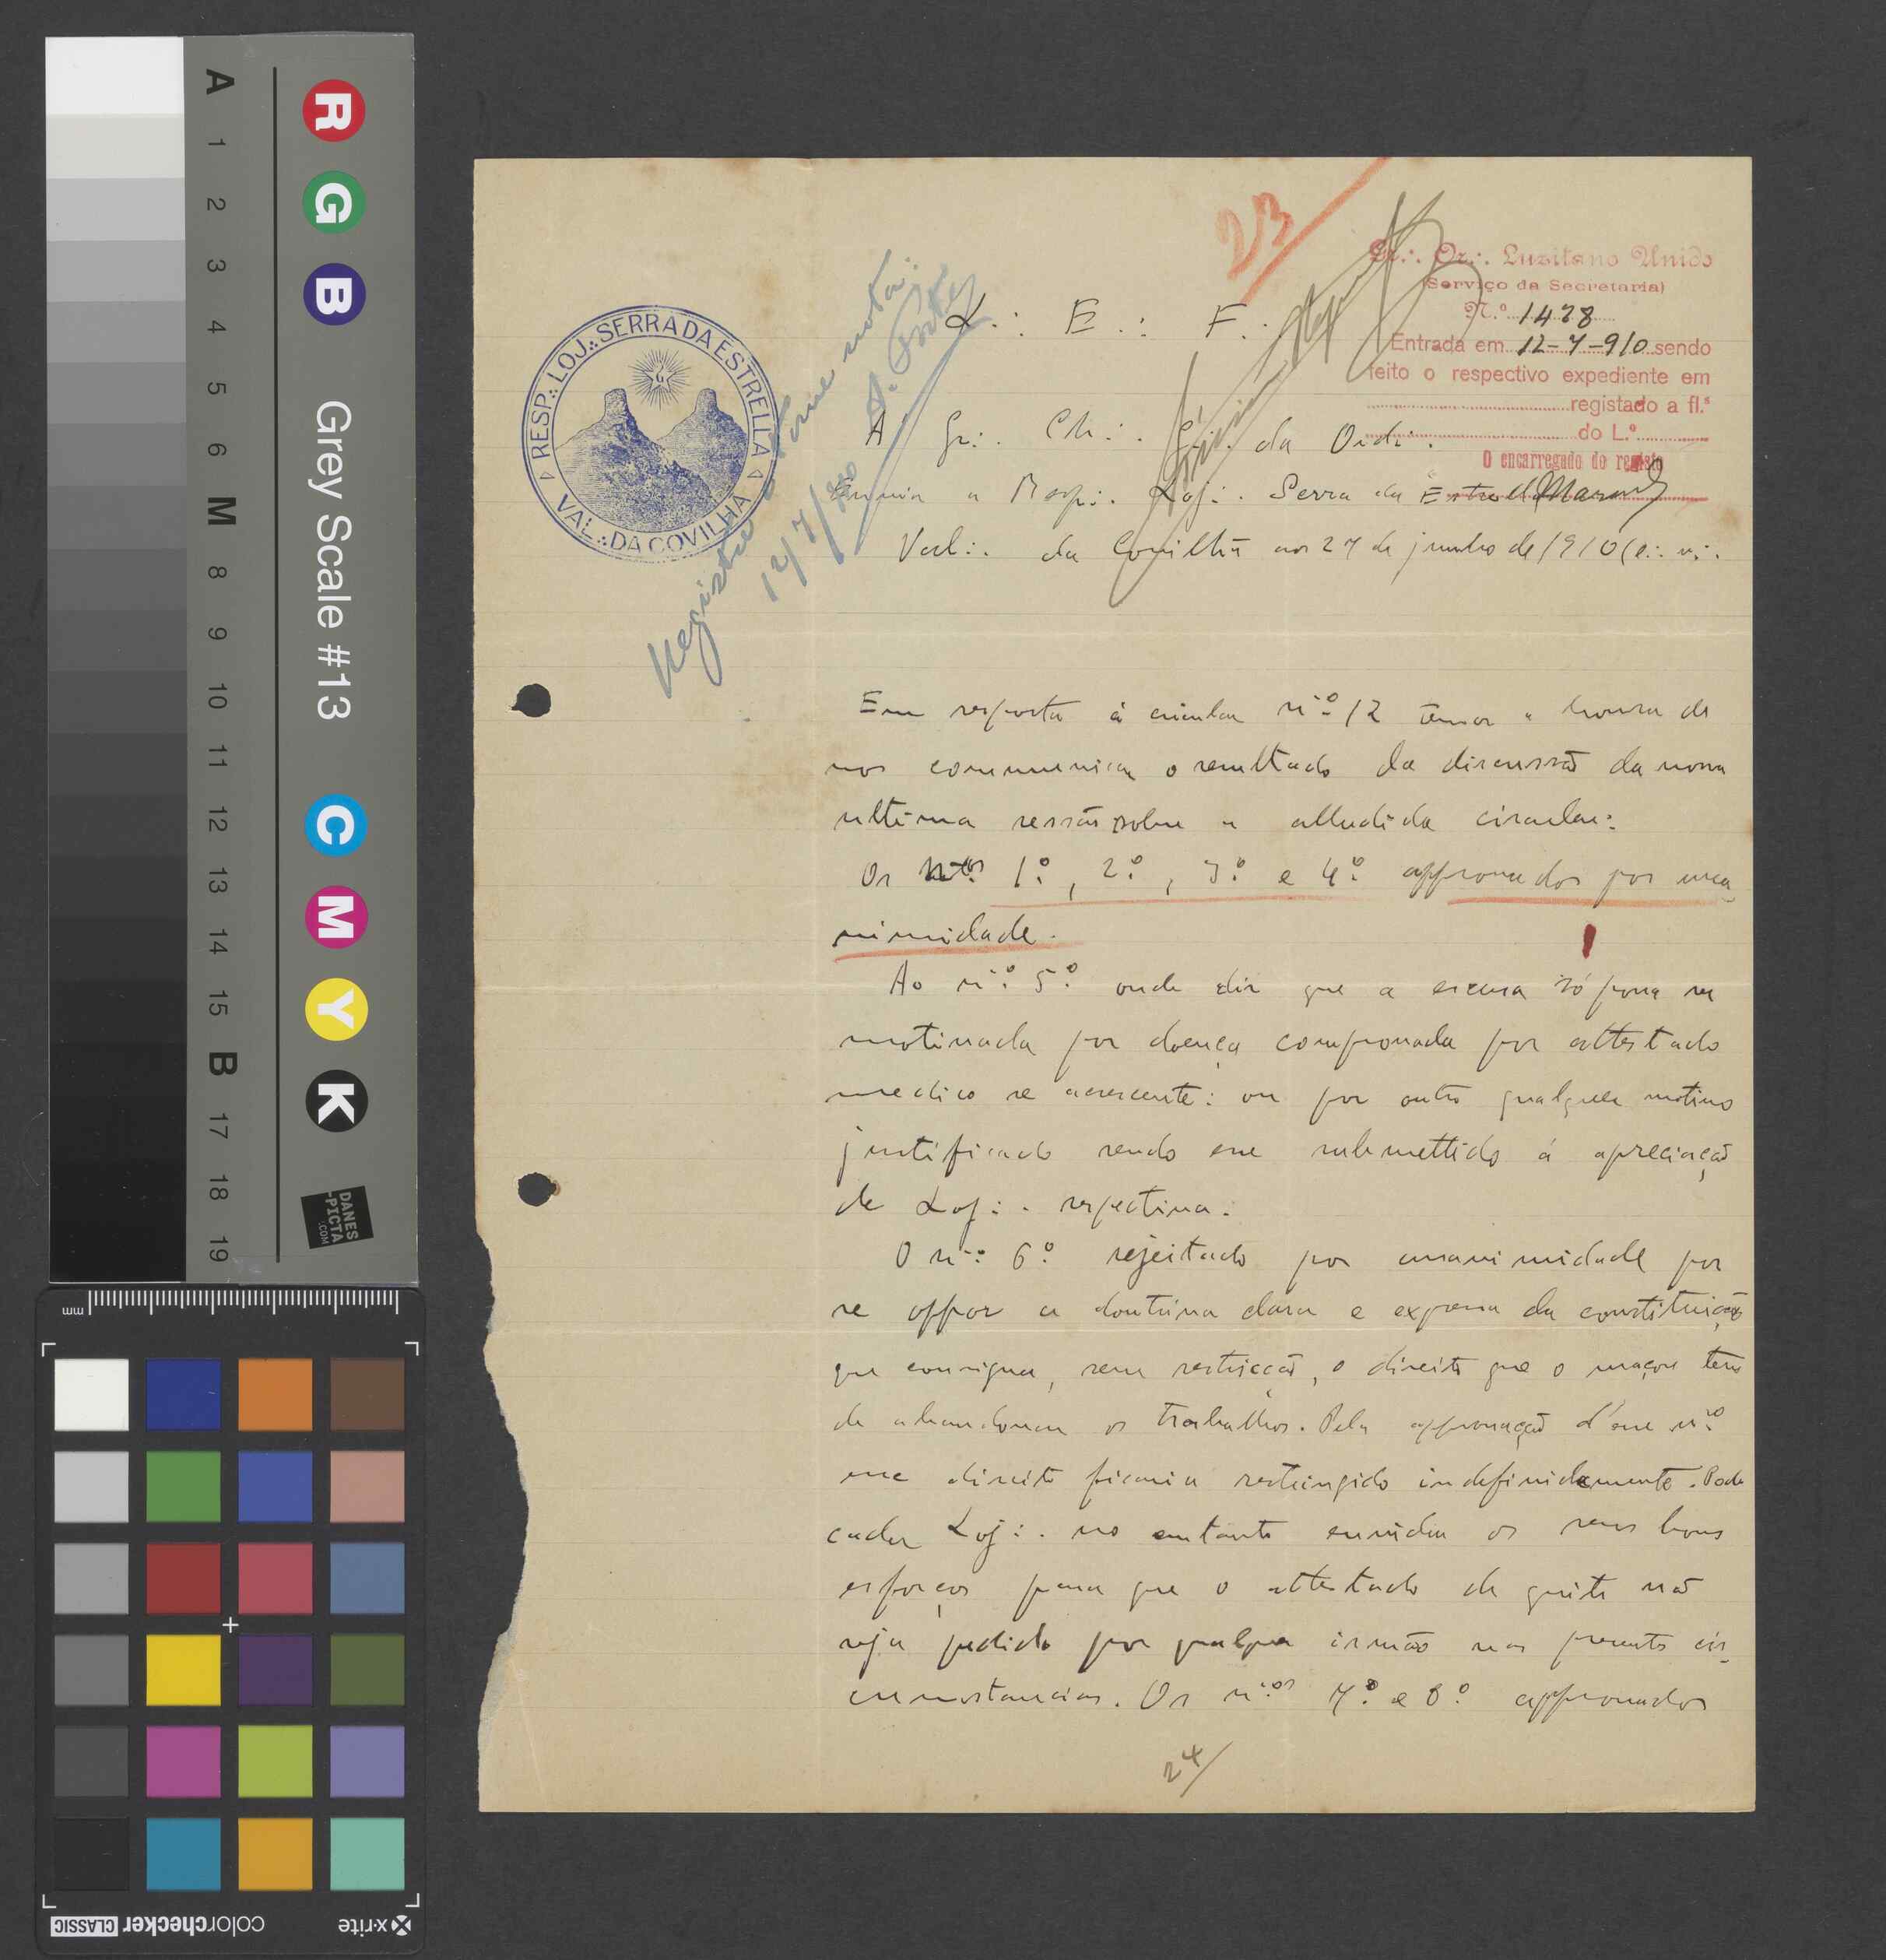 23
Gr∴ Or∴ Luzitano Unido
(Serviço da Secretaria)
N.º 1428
Entrada em 12-7-910 sendo
feito o respectivo expediente em
registado a fl.ˢ
do L.º
O encarregado do registo
RESP∴ LOJ∴ SERRA DA ESTRELLA
VAL∴ DA COVILHA
G
Registe e tome nota.
12/7/910
L∴ E∴ F∴
A Gr∴ Ch∴ Ger∴ da Ord∴
Envia a Resp∴ Loj∴ Serra da Estrella
Val∴ da Covilhã aos 27 de junho de 1910 (e∴ v∴
Em resposta á circular n.º 12 temos a honra de
vos communicar o resultado da discussão da nossa
ultima sessão sobre a alludida circular:
Os n.ºˢ 1.º, 2.º, 3.º e 4.º approvados por una
nimidade.
Ao n.º 5.º onde diz que a escusa só possa ser
motivada por doença comprovada por attestado
medico se acrescente: ou por outro qualquer motivo
justificado sendo esse submettido á apreciação
da Loj∴ respectiva.
O n.º 6.º rejeitado por unanimidade por
se oppor a doutrina clara e expressa da constituição
que consigna, sem restricção, o direito que o maçon tem
de abandonar os trabalhos. Pela approvação d'esse n.º
esse direito ficaria restringido indefinidamente. Pode
cada Loj∴ no entanto envidar os seus bons
esforços para que o attestado de quite não
seja pedido por qualquer irmão nas presentes cir-
cumstancias. Os n.ºˢ 7.º e 8.º approvados
24
A 1 2 3 4 5 6 M 8 9 10 11 12 13 14 15 B 17 18 19
R G B Grey Scale #13 C M Y K
DANES
-PICTA
.COM
mm
x-rite
colorchecker CLASSIC